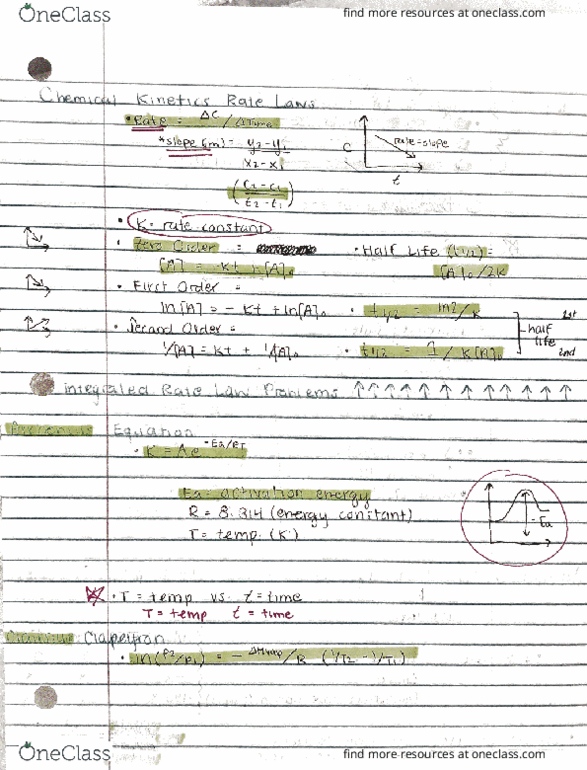 OneClass
find more resources at oneclass.com
Chemical Kinetics Rate Laws
• Rate = ΔC / ΔTime
*slope (m) = y₂-y₁
x₂-x₁
C
rate=slope
t
(c₂-c₁)
t₂-t₁
• K = rate constant
• Zero Order =
• Half Life (t1/2) =
[A] = -kt + [A]₀
[A]₀/2K
• First Order =
ln[A] = - Kt + ln[A]₀
• t1/2 = ln2/K
1st
• Second Order =
half life
1/[A] = Kt + 1/[A]₀
• t1/2 = 1 / K[A]₀
2nd
integrated Rate Law Problems ↑↑↑↑↑↑↑↑↑↑↑↑↑
Equation
• K = Ae^-Ea/RT
Ea = activation energy
R = 8.314 (energy constant)
T = temp. (K)
Ea
• T = temp vs. t = time
T = temp t = time
Clapeyron
• ln(P₂/P₁) = - ΔHvap/R (1/T₂ - 1/T₁)
OneClass
find more resources at oneclass.com